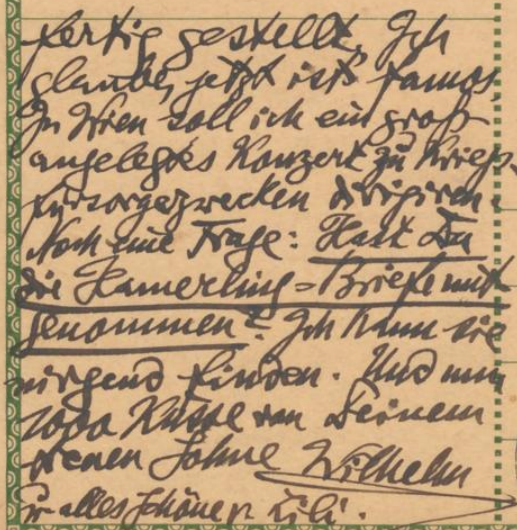 fertig gestellt. Ich
glaube, jetzt ist's famos.
In Wien soll ich ein groß
angelegtes Konzert zu Kriegs-
fürsorgezwecken dirigiren.
Noch eine Frage: Hast Du
die Hamerling-Briefe mit
genommen? Ich kann sie
nirgend finden. Und nun
1000 Küsse von Deinem
treuen Sohne Wilhelm
alles Schöne v. Lili.